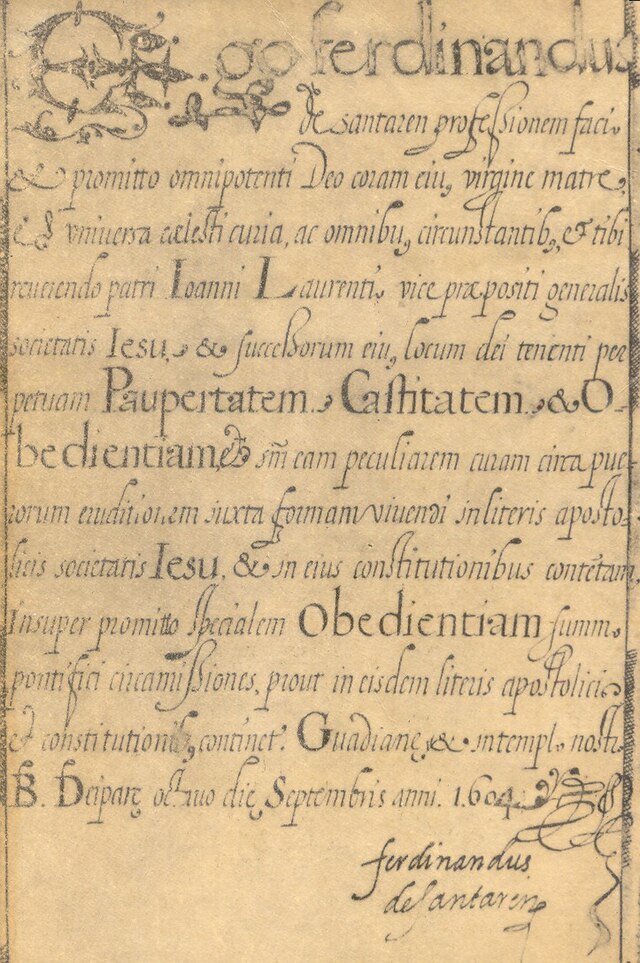 Ego ferdinandus
de santaren professionem faci.
& promitto omnipotenti Deo coram eiu, virgine matre,
et vniversa cælesti curia, ac omnibu, circunstantib, et tibi
reuerendo patri Ioanni Laurenti, vice præpositi generalis
societatis Iesu, & successorum eiu, locum dei tenenti per
petuam Paupertatem, Castitatem, & O-
bedientiam, et sm̄ eam peculiarem curam circa pue-
rorum eruditionem iuxta formam viuendi in literis aposto-
licis societatis Iesu, & in eius constitutionibus contētam,
Insuper promitto specialem Obedientiam summ.
pontifici circa missiones, prout in eisdem literis apostolici,
et constitutioni, continet. Guadianę, & in templ. nostr.
B. Deiparę octauo die Septembris anni. 1.604.
ferdinandus
de santaren